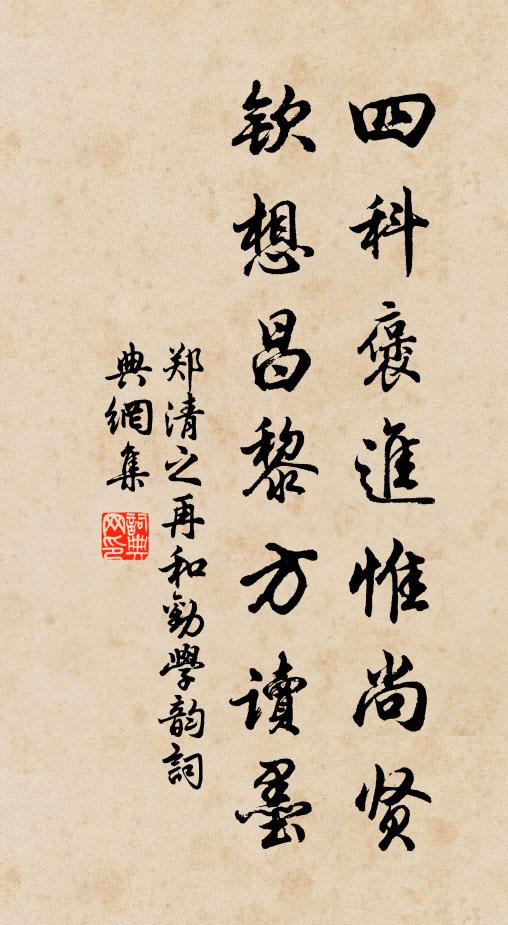 四科褒進惟尚贤
欽想昌黎方讀墨
郑清之再和勸學韵詞
典網集
詞典网印